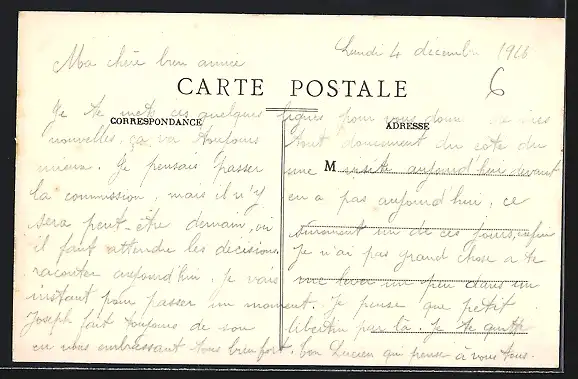 Lundi 4 décembre 1916
Ma chère bien aimée
6
CARTE POSTALE
CORRESPONDANCE
ADRESSE
M
Je te mets ces quelques lignes pour vous donner de mes
nouvelles, ça va toujours tout doucement du côté du
mieux. Je pensais passer une visite aujourd'hui devant
la commission, mais il n'y en a pas aujourd'hui, ce
sera peut-être demain, ou sûrement un de ces jours, enfin
il faut attendre les décisions. Je n'ai pas grand chose à te
raconter aujourd'hui, je vais me lever un peu dans un
instant pour passer un moment. Je pense que petit
Joseph fait toujours de son libertin par là. Je te quitte
en vous embrassant tous bien fort. Ton Lucien qui pense à vous tous.